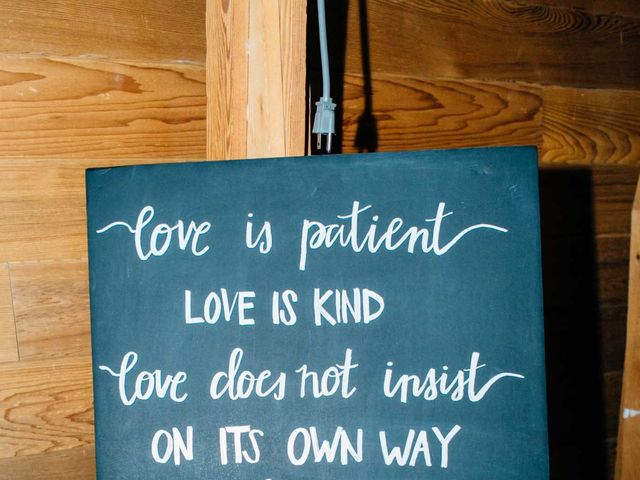 love is patient
LOVE IS KIND
love does not insist
ON ITS OWN WAY